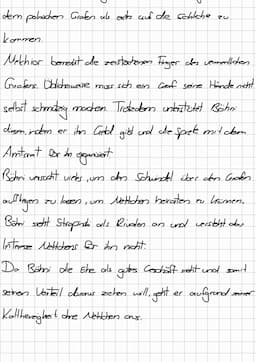 dem polnischen Grafen als auf die Schliche zu
kommen.
Melchior bemerkt die zerstochenen Finger des vermeintlichen
Grafens. Üblicherweise muss sich ein Graf seine Hände nicht
selbst schmutzig machen. Trotzdem unterstützt Böhni
diesen, indem er ihm Geld gibt und die mit dem
Amtsrat für ihn
Böhni versucht vieles, um den Schwindel über den Grafen
auffliegen zu lassen, um Nettchen heiraten zu können.
Böhni sieht Strapinski als Rivalen an und versteht das
Interesse Nettchens für ihn nicht.
Da Böhni die Ehe als gutes Geschäft sieht und somit
seinen Vorteil daraus ziehen will, geht er aufgrund seiner
ohne Nettchen aus.